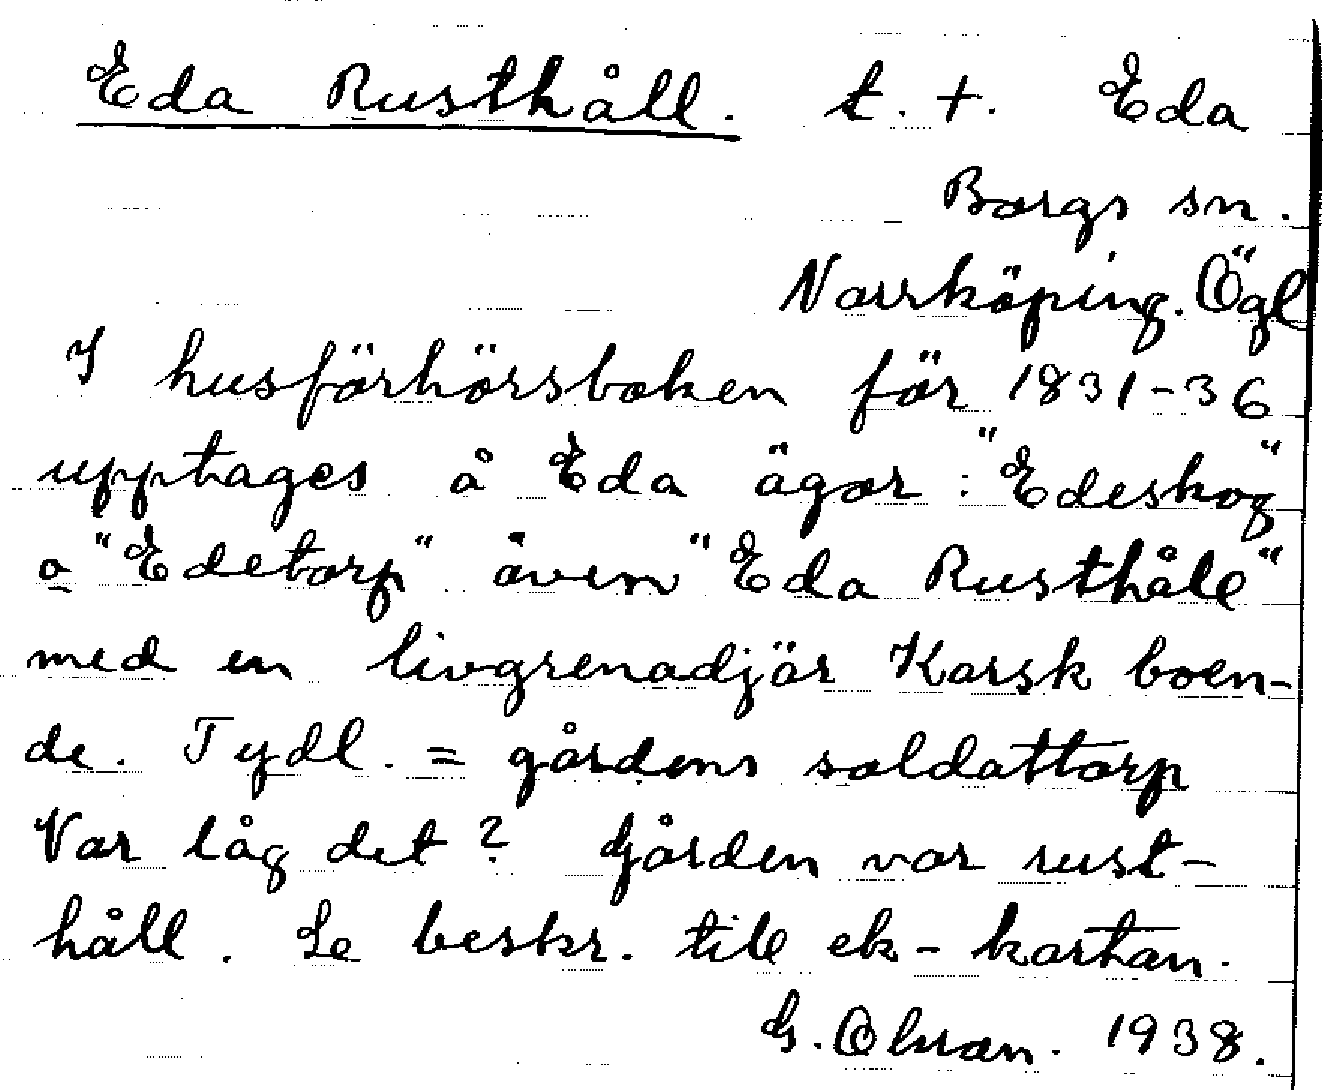 Eda Rusthåll. t. +. Eda
Borgs sn.
Norrköping. Ögl
I husförhörsboken för 1831-36
upptages å Eda ägor: "Edeskog"
o "Edetorp" även "Eda Rusthåll"
med en livgrenadjär Karsk boen-
de. Tydl. = gårdens soldattorp
Var låg det? Gården var rust-
håll. Se beskr. till ek-kartan.
G. Olsson. 1938.